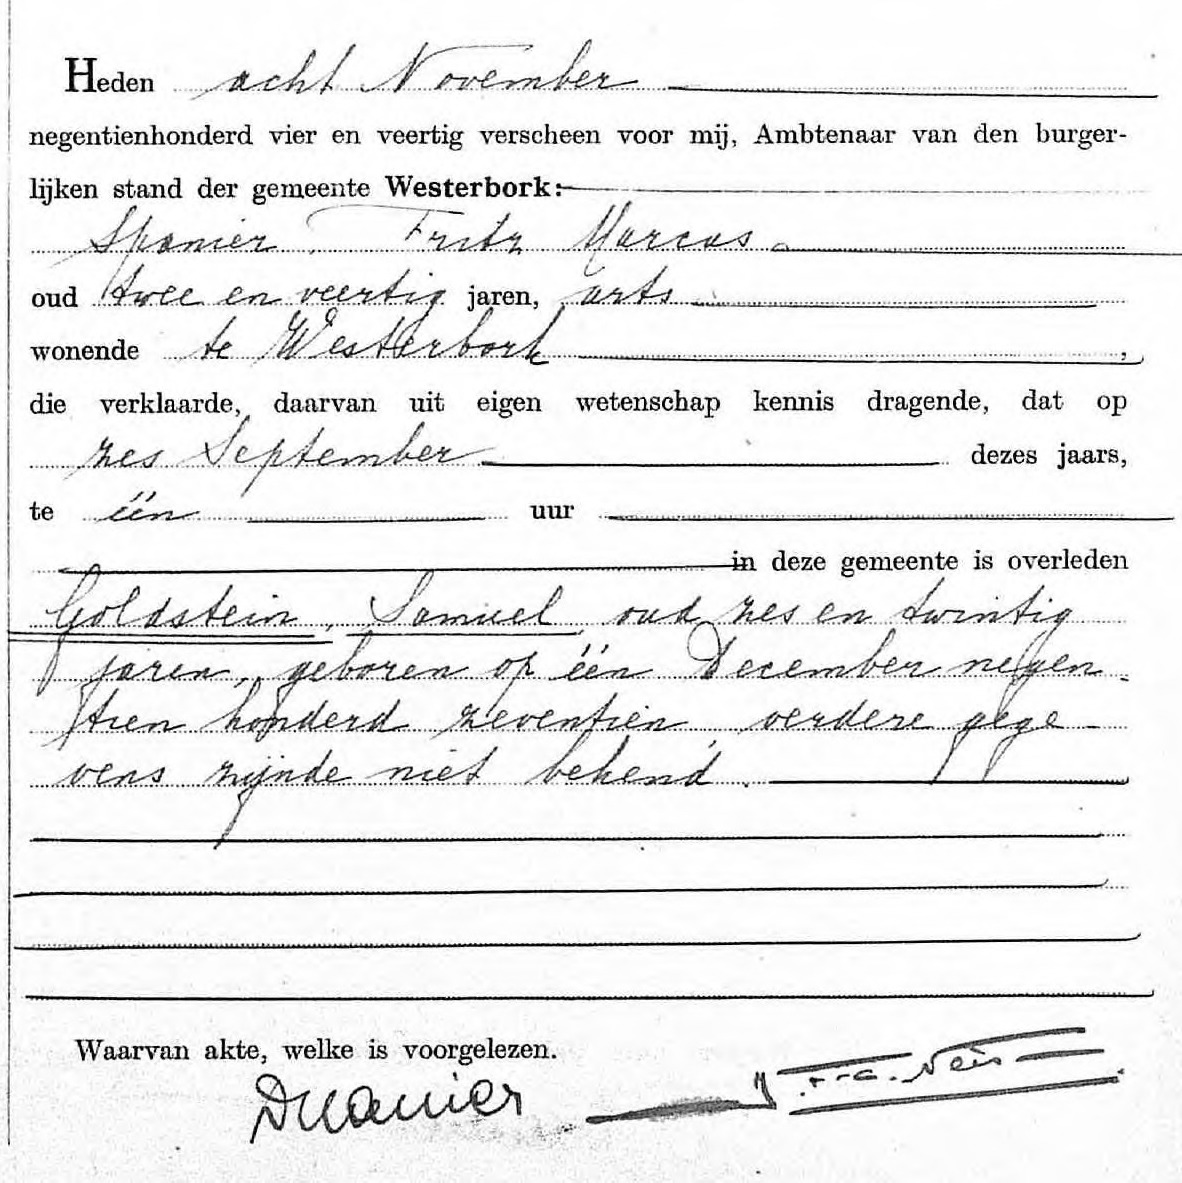 Heden acht November
negentienhonderd vier en veertig verscheen voor mij, Ambtenaar van den burger-
lijken stand der gemeente Westerbork:
Spanier, Fritz Marcus
oud twee en veertig jaren, arts
wonende te Westerbork,
die verklaarde, daarvan uit eigen wetenschap kennis dragende, dat op
zes September dezes jaars,
te één uur
in deze gemeente is overleden
Goldstein, Samuel oud zes en twintig
jaren, geboren op één December negen-
tien honderd zeventien, verdere gege-
vens zijnde niet bekend.
Waarvan akte, welke is voorgelezen.